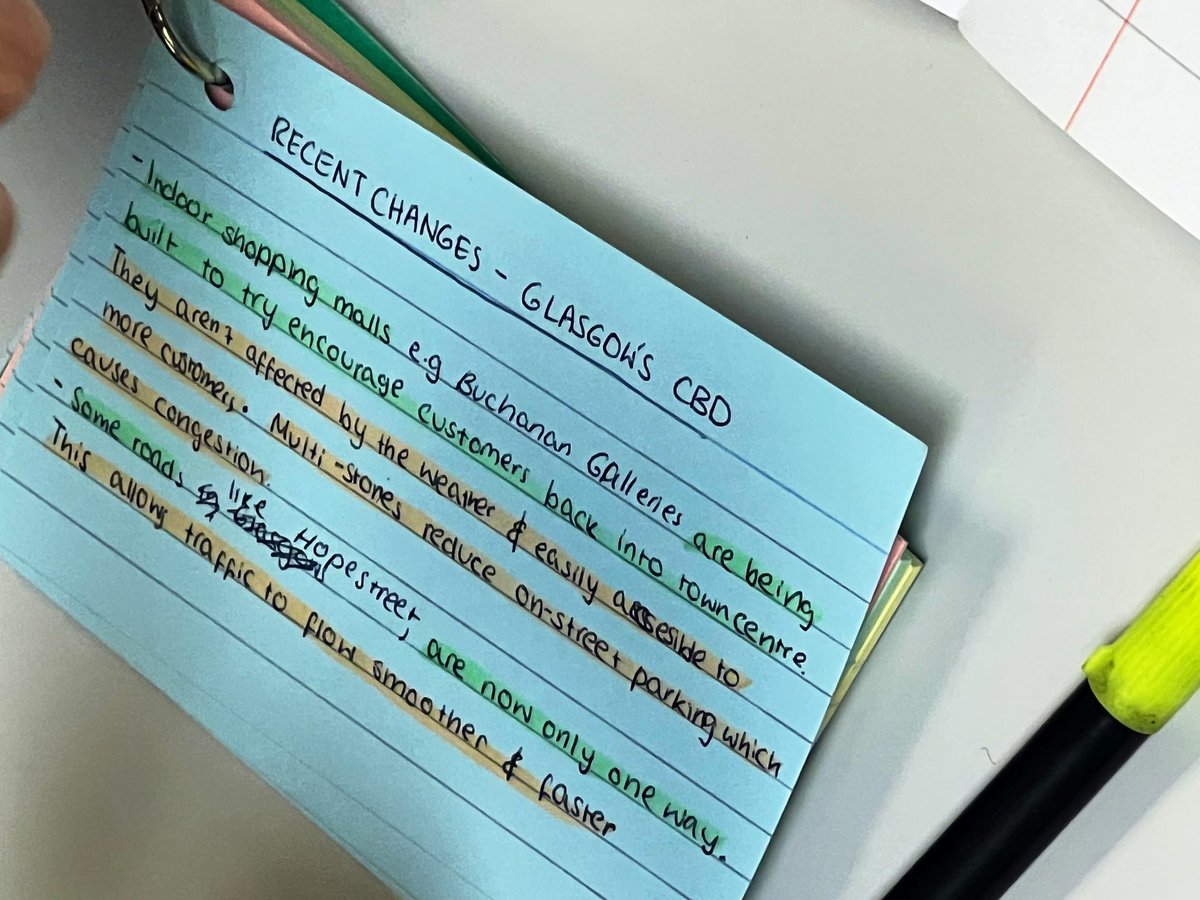 RECENT CHANGES - GLASGOW'S CBD
- Indoor shopping malls e.g Buchanan Galleries are being
built to try encourage customers back into towncentre.
They aren't affected by the weather & easily accesible to
more customers. Multi-stories reduce on-street parking which
causes congestion.
- Some roads like Hopestreet, are now only one way.
This allows traffic to flow smoother & faster